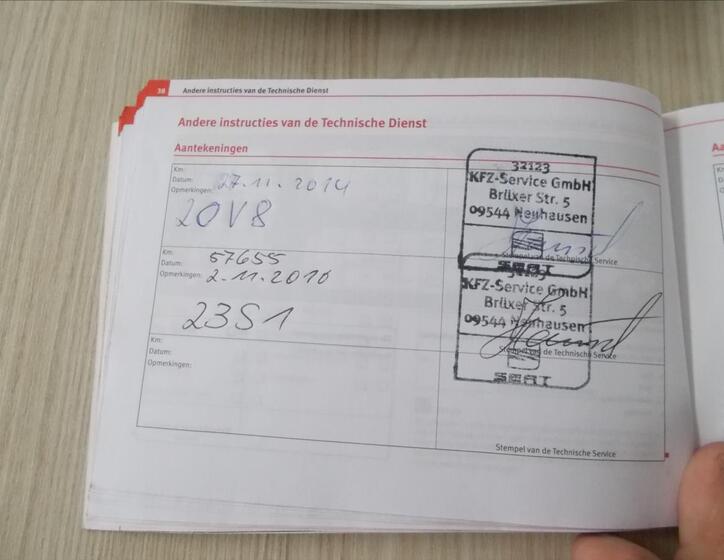 38 Andere instructies van de Technische Dienst
Andere instructies van de Technische Dienst
Aantekeningen
Km:
Datum: 27.11.2014
Opmerkingen:
20V8
32123
KFZ-Service GmbH
Brüxer Str. 5
09544 Neuhausen
Stempel van de Technische Service
SEAT
Km: 57655
Datum:
Opmerkingen: 2.11.2016
23S1
KFZ-Service GmbH
Brüxer Str. 5
09544 Neuhausen
Stempel van de Technische Service
SEAT
Km:
Datum:
Opmerkingen:
Stempel van de Technische Service